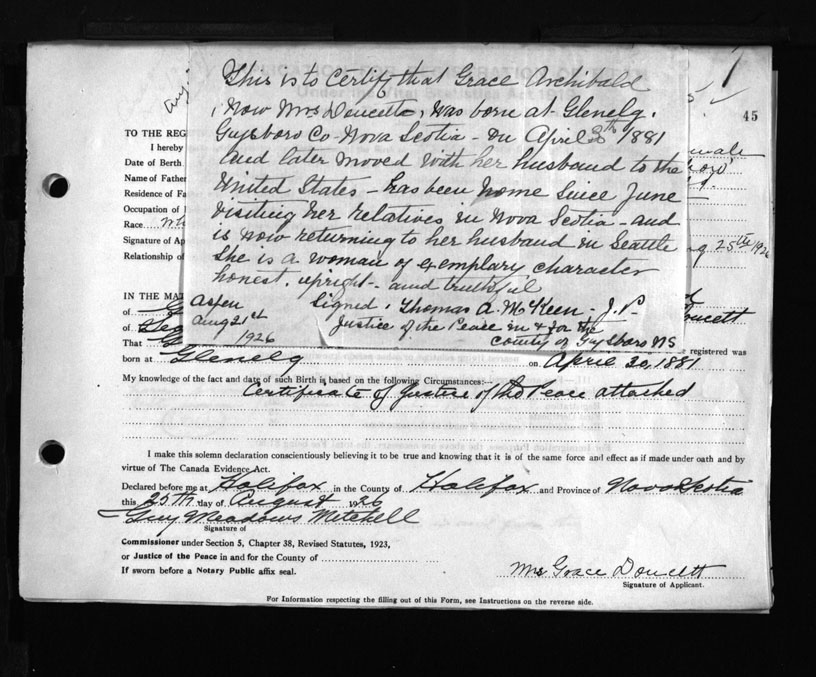 This is to Certify that Grace Archibald
, now Mrs Doucette, was born at Glenelg.
Guysboro Co. Nova Scotia - on April 30th 1881
And later moved with her husband to the
United States - has been home since June -
visiting her relatives in Nova Scotia - and
is now returning to her husband in Seattle
She is a woman of exemplary character
honest, upright - and truthful
Aspen Signed, Thomas A. McKeen, J.P.
Aug 21st Justice of the Peace in & for the
1926 County of Guysboro NS
45
TO THE REG
I hereby
Date of Birth
Name of Father
Residence of Fa
Occupation of
Race
Signature of Ap 25th 1926
Relationship of
IN THE MAT
of
of Doucett
That registered was
born at Glenelg on April 30, 1881
My knowledge of the fact and date of such Birth is based on the following Circumstances:—
Certificate of Justice of the Peace attached
I make this solemn declaration conscientiously believing it to be true and knowing that it is of the same force and effect as if made under oath and by
virtue of The Canada Evidence Act.
Declared before me at Halifax in the County of Halifax and Province of Nova Scotia
this 25th day of August 1926
Guy Meadows Mitchell
Signature of
Commissioner under Section 5, Chapter 38, Revised Statutes, 1923,
or Justice of the Peace in and for the County of
If sworn before a Notary Public affix seal.
Mrs Grace Doucett
Signature of Applicant.
For Information respecting the filling out of this Form, see Instructions on the reverse side.